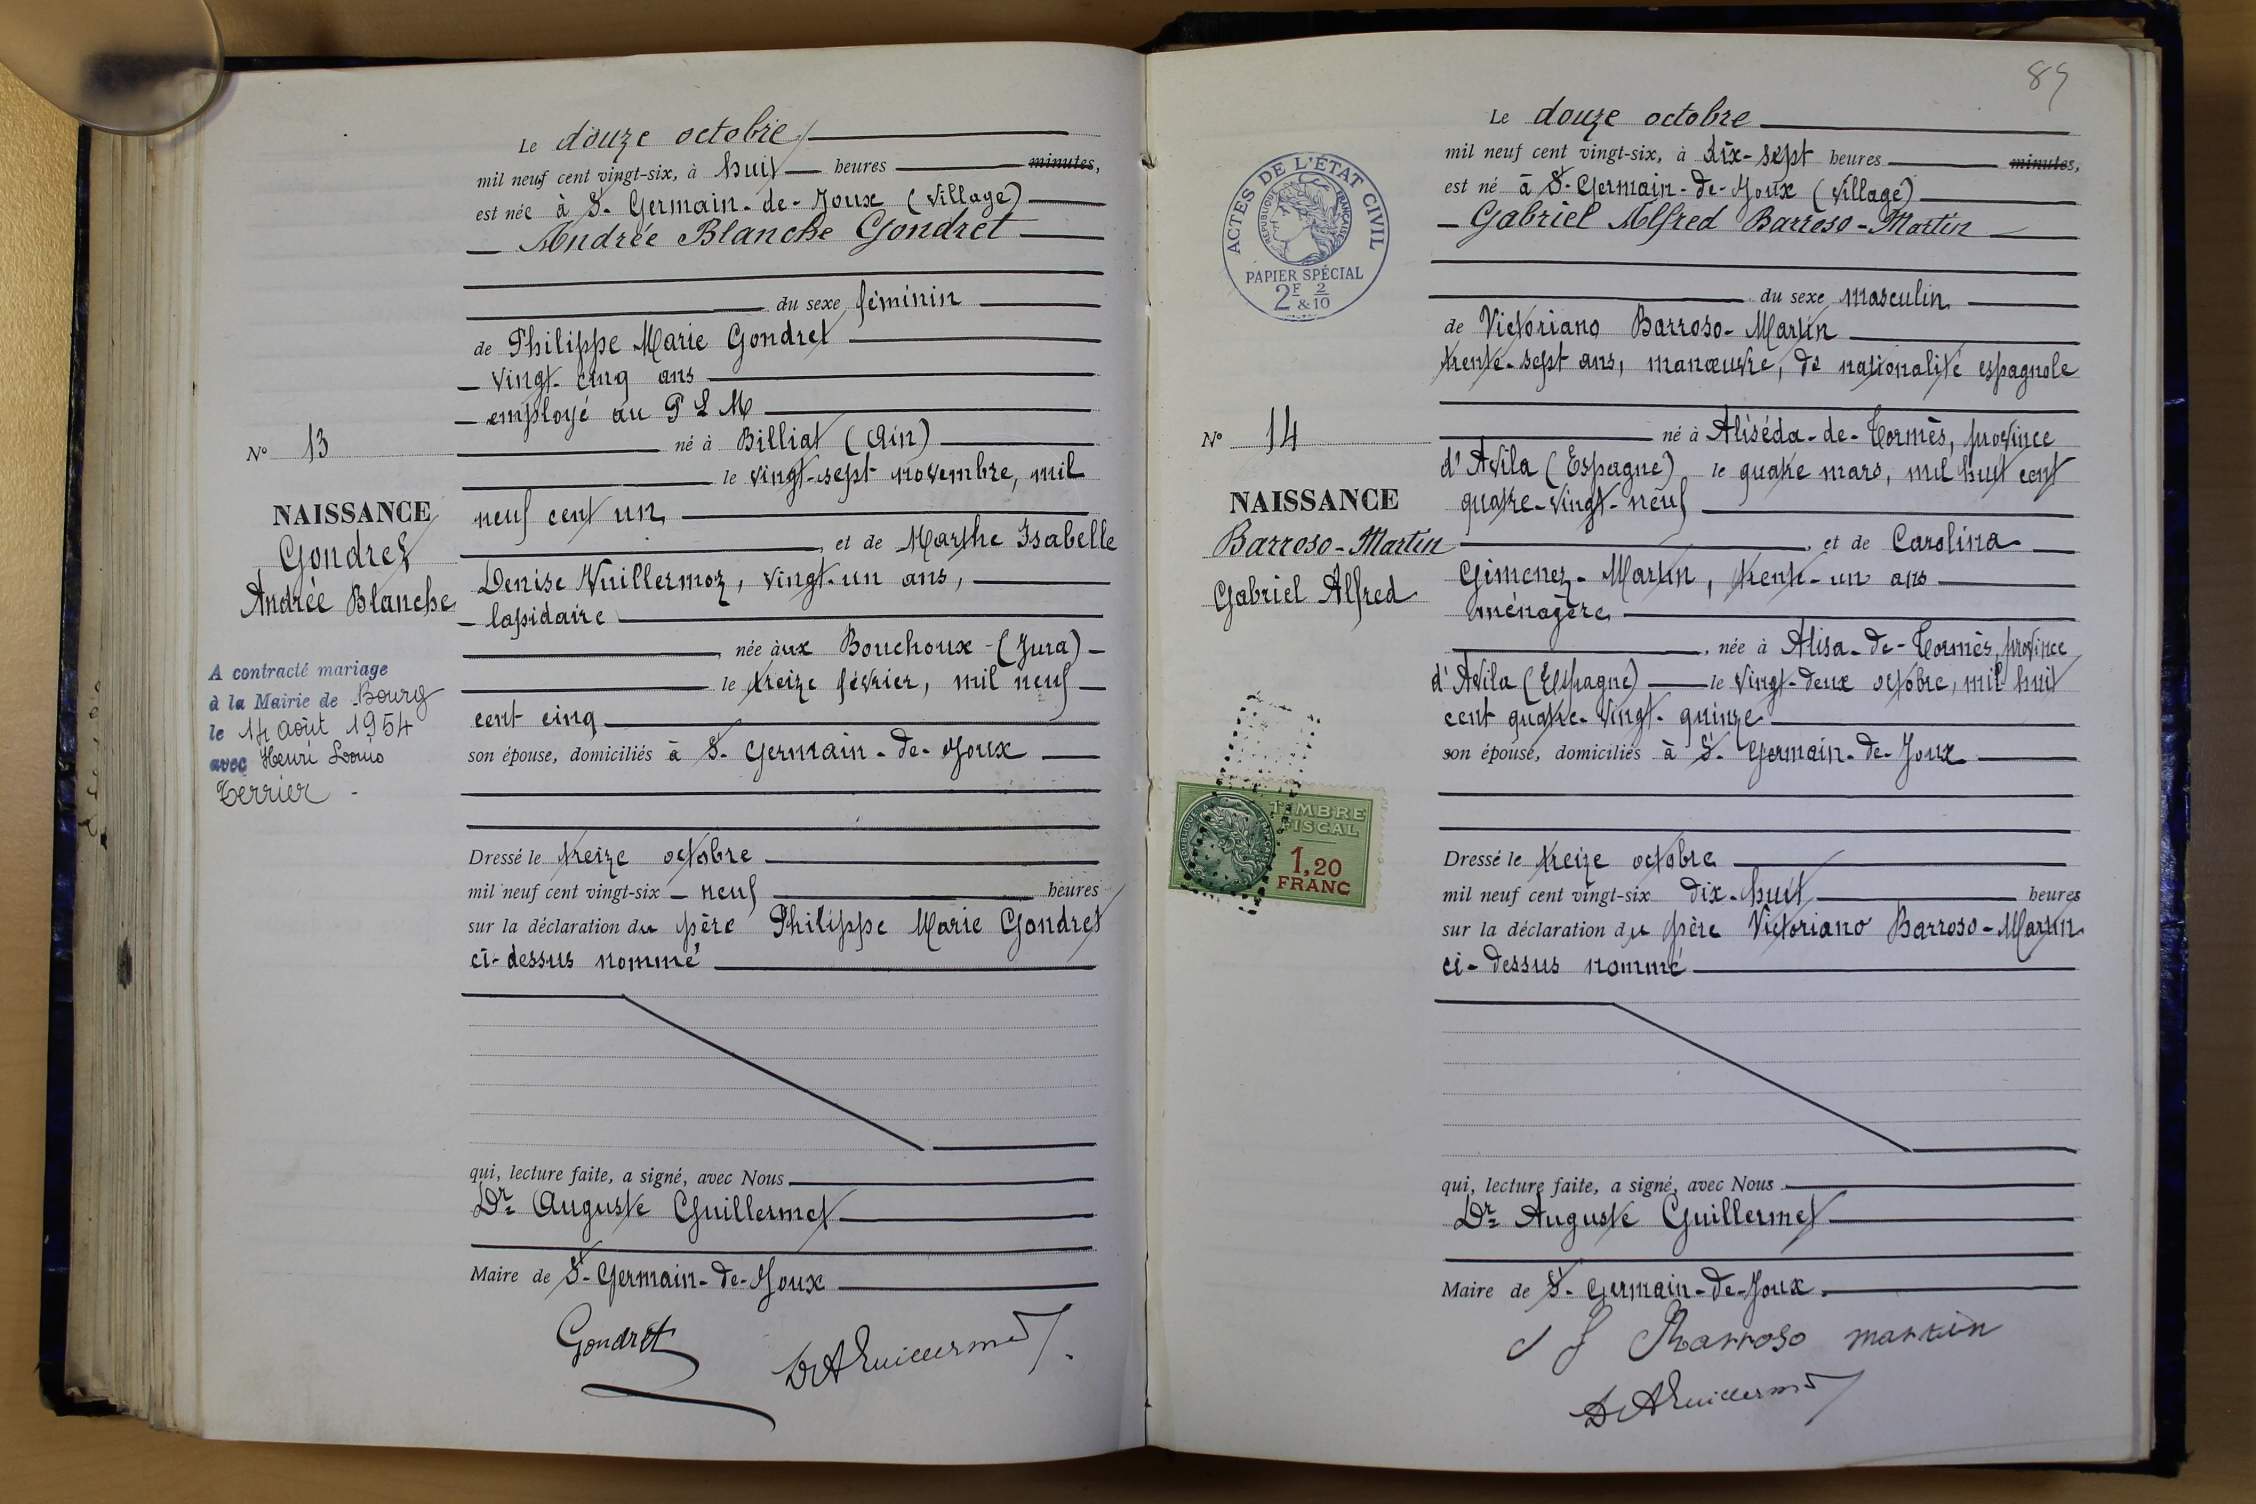 Le douze octobre
mil neuf cent vingt-six, à huit heures minutes,
est née à St-Germain-de-Joux (village)
Andrée Blanche Gondret
du sexe féminin
de Philippe Marie Gondret
vingt-cinq ans
employé au P L M
né à Billiat (Ain)
le vingt-sept novembre, mil
neuf cent un
, et de Marthe Isabelle
Denise Vuillermoz, vingt-un ans,
lapidaire
, née aux Bouchoux-(Jura)
le treize février, mil neuf
cent cinq
son épouse, domiciliés à St-Germain-de-Joux
Dressé le treize octobre
mil neuf cent vingt-six neuf heures
sur la déclaration du père Philippe Marie Gondret
ci-dessus nommé
qui, lecture faite, a signé, avec Nous
Dr Auguste Guillermet
Maire de St-Germain-de-Joux
Gondret
Dr A Guillermet
N° 13
NAISSANCE
Gondret
Andrée Blanche
A contracté mariage
à la Mairie de Bourg
le 14 août 1954
avec Henri Louis
Terrier
Le douze octobre
mil neuf cent vingt-six, à dix-sept heures minutes,
est né à St-Germain-de-Joux (village)
Gabriel Alfred Barroso-Martin
du sexe masculin
de Victoriano Barroso-Martin
trente-sept ans, manœuvre, de nationalité espagnole
né à Aliséda-de-Tormès, province
d'Avila (Espagne) le quatre mars, mil huit cent
quatre-vingt-neuf
, et de Carolina
Gimenez-Martin, trente-un ans
ménagère
, née à Alisa-de-Tormès, province
d'Avila (Espagne) le vingt-deux octobre, mil huit
cent quatre-vingt-quinze
son épouse, domiciliés à St-Germain-de-Joux
Dressé le treize octobre
mil neuf cent vingt-six dix-huit heures
sur la déclaration du père Victoriano Barroso-Martin
ci-dessus nommé
qui, lecture faite, a signé, avec Nous
Dr Auguste Guillermet
Maire de St-Germain-de-Joux
Barroso martin
Dr A Guillermet
N° 14
NAISSANCE
Barroso-Martin
Gabriel Alfred
ACTES DE L'ÉTAT CIVIL
RÉPUBLIQUE FRANÇAISE
PAPIER SPÉCIAL
2F & 2/10
TIMBRE
FISCAL
1,20
FRANC